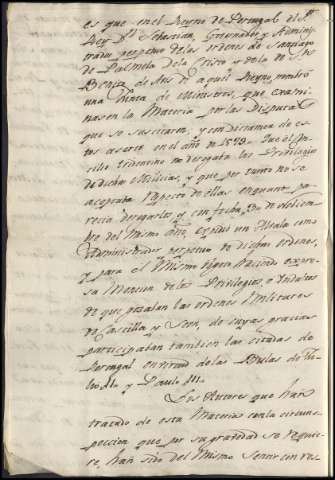 es que en el Reyno de Portugal el Sr.
Rey Dn. Sebastian, Governador y Adminis
trador perpetuo de las ordenes de Santiago
de Palmela de la Cristo y de la de Sn.
Benito de Avis de aquel Reyno, nombró
una Junta de Ministros, que exami
nasen la Materia por las Disputas
que se suscitaron, y con dictamen de es
tos acordó en el año de 1573. que el Con
cilio Tridentino no derogaba los Privilegios
de dichas Milicias, y que por tanto no se
aceptaba respecto de ellas en quanto pa
recia derogarlos, y con fecha 20 de
bre del Mismo año, expidió un Alvala como
Administrador perpetuo de dichas ordenes,
y para el Mismo efecto haciendo expre
sa Mencion de los Privilegios, e Indultos
de que gozaban las ordenes Militares
de Castilla y Leon, de cuyas gracias
participaban tambien las citadas de
Portugal en virtud de las Bulas de
y Paulo III.
Los Autores que han
tratado de esta Materia con la circuns
peccion que por su gravedad se requie
re, han sido del Mismo Sentir con res